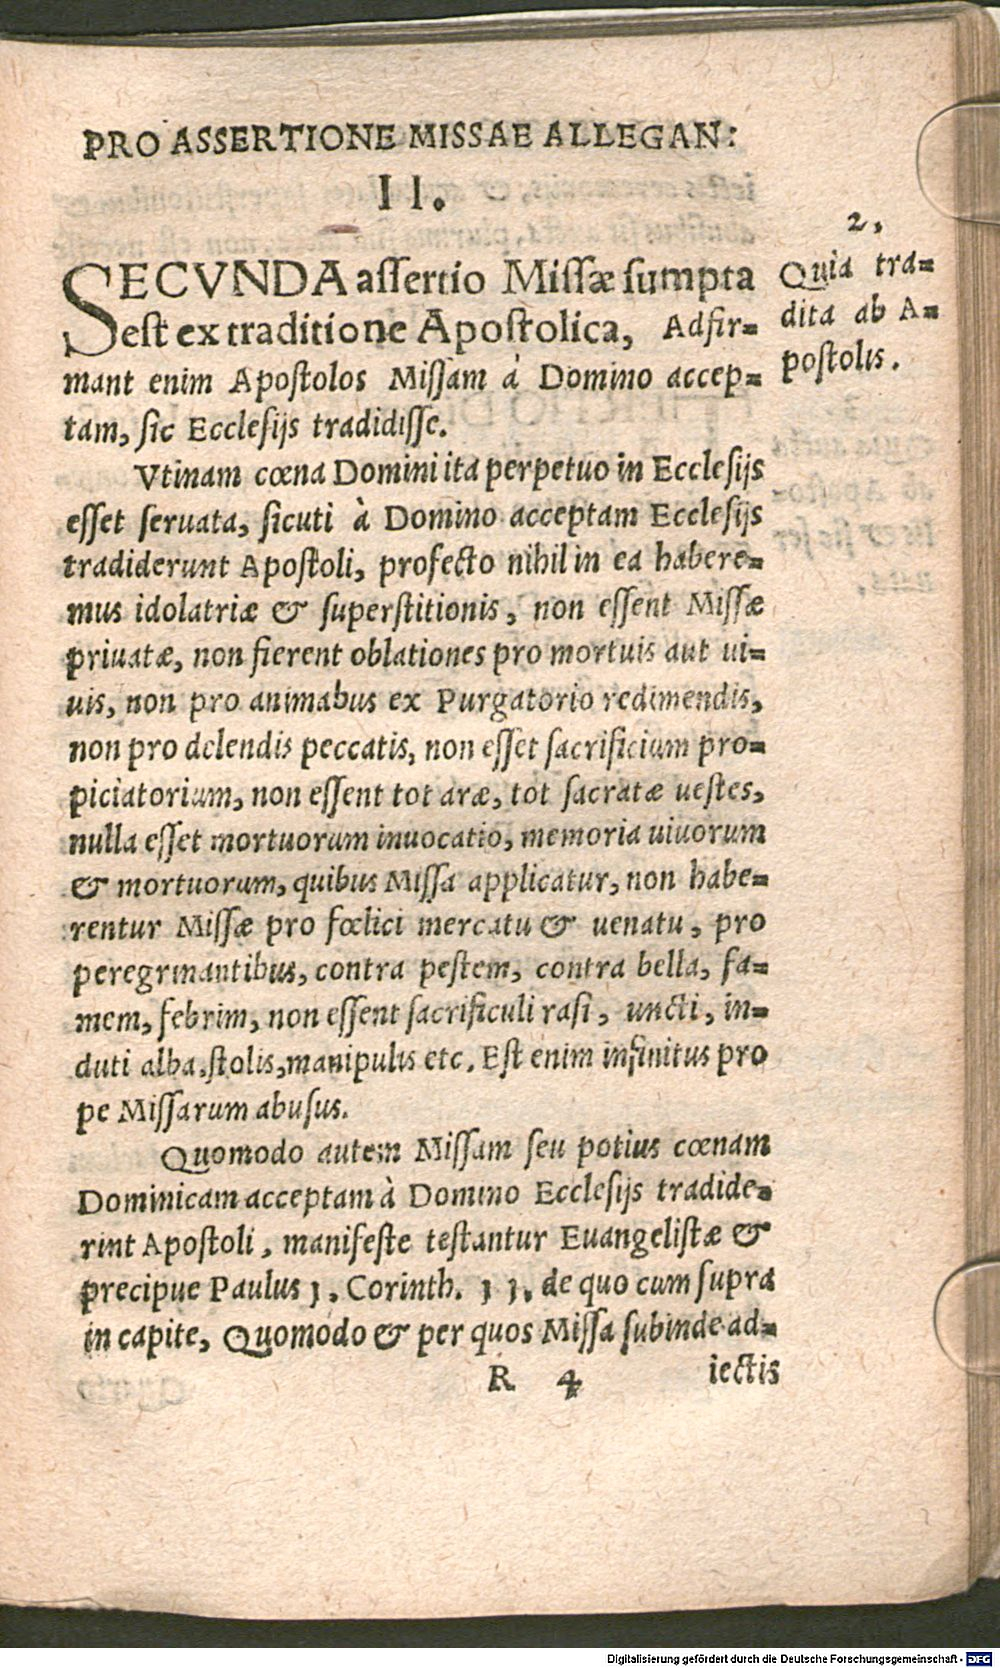 PRO ASSERTIONE MISSAE ALLEGAN:
II.
SECVNDA assertio Missæ sumpta
est ex traditione Apostolica, Adfir-
mant enim Apostolos Missam à Domino accep-
tam, sic Ecclesijs tradidisse.
2.
Quia tra-
dita ab A-
postolis.
Vtinam cœna Domini ita perpetuo in Ecclesijs
esset seruata, sicuti à Domino acceptam Ecclesijs
tradiderunt Apostoli, profecto nihil in ea habere-
mus idolatriæ & superstitionis, non essent Missæ
priuatæ, non fierent oblationes pro mortuis aut ui-
uis, non pro animabus ex Purgatorio redimendis,
non pro delendis peccatis, non esset sacrificium pro-
piciatorium, non essent tot aræ, tot sacratæ uestes,
nulla esset mortuorum inuocatio, memoria uiuorum
& mortuorum, quibus Missa applicatur, non habe-
rentur Missæ pro fœlici mercatu & uenatu, pro
peregrinantibus, contra pestem, contra bella, fa-
mem, febrim, non essent sacrificuli rasi, uncti, in-
duti alba, stolis, manipulis etc. Est enim infinitus pro
pe Missarum abusus.
Quomodo autem Missam seu potius cœnam
Dominicam acceptam à Domino Ecclesijs tradide-
rint Apostoli, manifeste testantur Euangelistæ &
precipue Paulus 1. Corinth. 11. de quo cum supra
in capite, Quomodo & per quos Missa subinde ad-
R 4 iectis
Digitalisierung gefördert durch die Deutsche Forschungsgemeinschaft - DFG